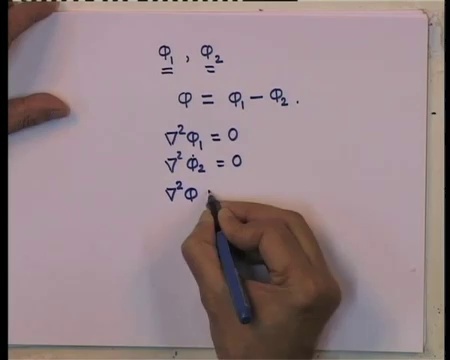 φ₁ , φ₂
φ = φ₁ − φ₂ .
∇²φ₁ = 0
∇²φ₂ = 0
∇²φ